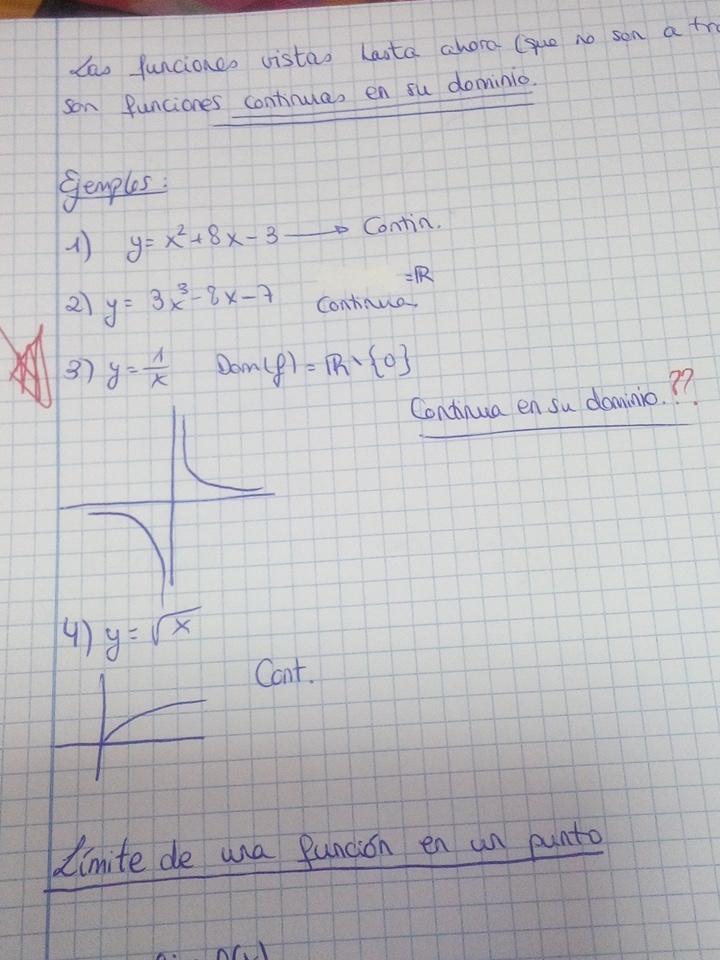 Las funciones vistas hasta ahora (que no son a
son funciones continuas en su dominio.
Ejemplos:
1) y = x² + 8x - 3 → Contin.
2) y = 3x³ - 8x - 7 Continua. = ℝ
3) y = 1/x Dom(f) = ℝ \ {0}
Continua en su dominio. ??
4) y = √x
Cont.
Límite de una función en un punto